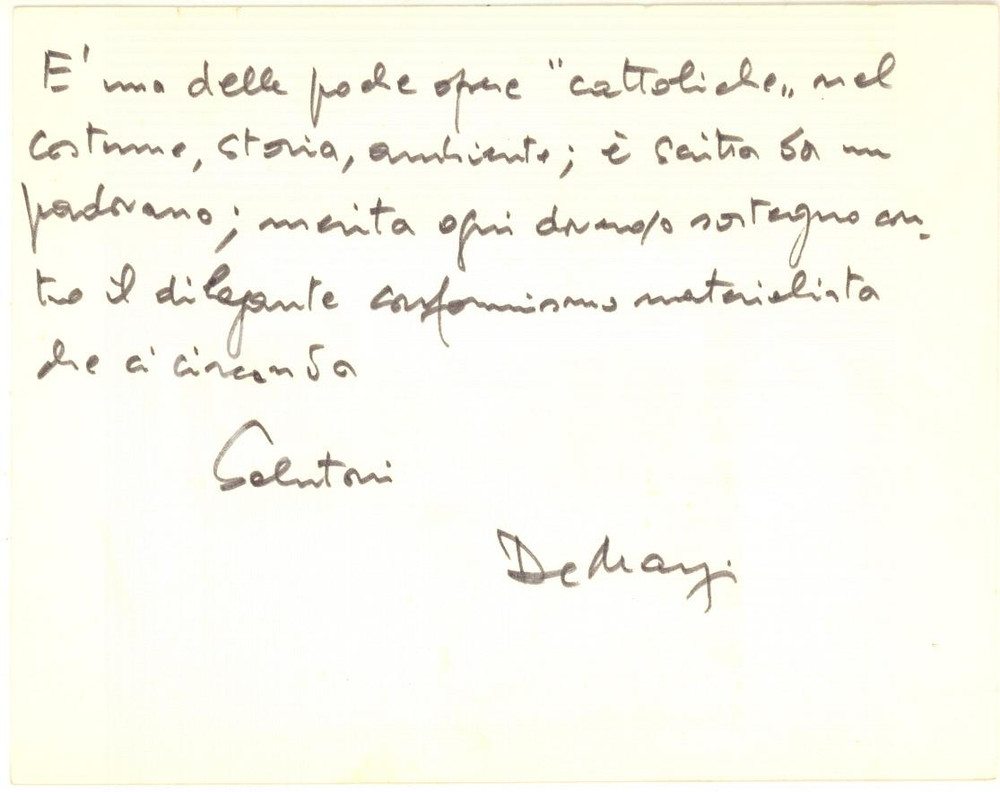 E' una delle poche opere "cattoliche„ nel
costume, storia, ambiente; è scritta da un
padovano; merita ogni doveroso sostegno con-
tro il dilagante conformismo materialista
che ci circonda
Salutoni
De Marzi